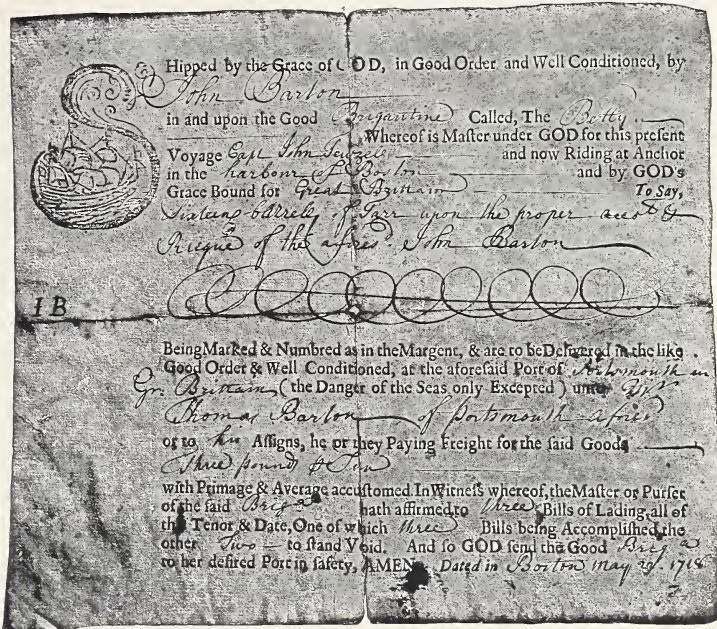 SHipped by the Grace of GOD, in Good Order and Well Conditioned, by
John Barton
in and upon the Good Brigantine Called, The Betty
Whereof is Maſter under GOD for this preſent
Voyage Capt John and now Riding at Anchor
in the harbour of Boston and by GOD's
Grace Bound for Great Brittain To Say,
Sixteen barrels of Tarr upon the proper accot &
of the aforesd. John Barton
I B
Being Marked & Numbred as in the Margent, & are to be Delivered in the like
Good Order & Well Conditioned, at the aforeſaid Port of Portsmouth in
Gr. Brittain (the Danger of the Seas only Excepted) unto Mr
Thomas Barton of Portsmouth aforesd
or to his Aſſigns, he or they Paying Freight for the ſaid Goods
Three pounds Tun
with Primage & Average accuſtomed. In Witneſs whereof, the Maſter or Purſer
of the ſaid Briga hath affirmed to three Bills of Lading, all of
this Tenor & Date, One of which three Bills being Accompliſhed, the
other Two to ſtand Void. And ſo GOD ſend the Good Briga
to her deſired Port in ſafety, AMEN. Dated in Boston May 1718